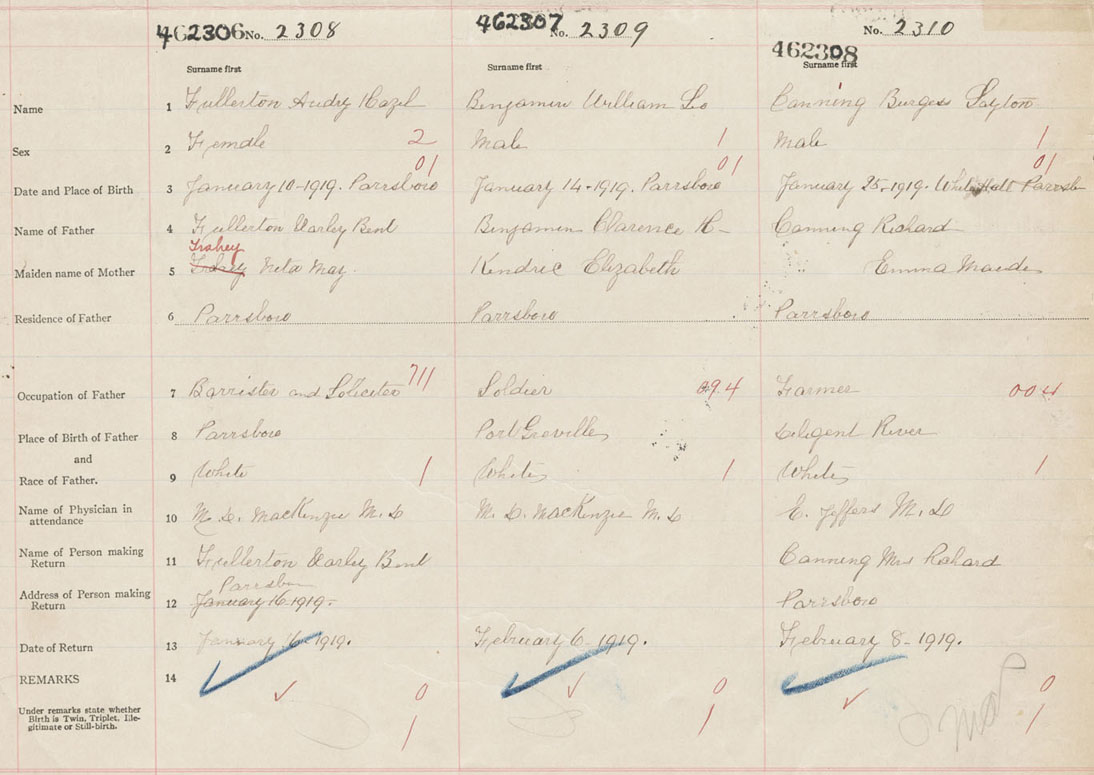 462306 No. 2308
462307 No. 2309
No. 2310
462308
Surname first
Surname first
Surname first
Name 1 Fullerton Audry Hazel
Benjamin William Leo
Canning Burgess Layton
Sex 2 Female 2
Male 1
Male 1
01
01
01
Date and Place of Birth 3 January 10-1919. Parrsboro
January 14-1919. Parrsboro
January 25-1919. White Hall Parrsb
Name of Father 4 Fullerton Varley Bent
Benjamin Clarence H-
Canning Richard
Trahey
Maiden name of Mother 5 Neta May
Kendric Elizabeth
" Emma Maude
Residence of Father 6 Parrsboro
Parrsboro
Parrsboro
Occupation of Father 7 Barrister and Soliciter 711
Soldier 094
Farmer 004
Place of Birth of Father 8 Parrsboro
Port Greville
Diligent River
and
Race of Father. 9 White 1
White 1
White 1
Name of Physician in
attendance 10 M. D. MacKenzie M. D
M. D. MacKenzie M. D
E. Jeffers M. D
Name of Person making
Return 11 Fullerton Varley Bent
Canning Mrs Richard
Parrsboro
Address of Person making
Return 12 January 16-1919-
Parrsboro
Date of Return 13 January 16-1919.
February 6-1919.
February 8-1919.
REMARKS 14
0
0
0
Under remarks state whether
Birth is Twin, Triplet, Ille-
gitimate or Still-birth.
1
1
1